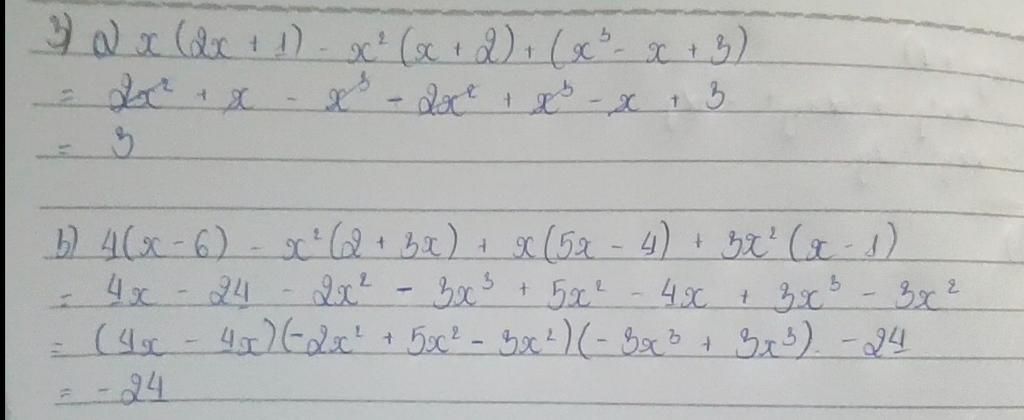 3) a) x(2x + 1) - x²(x + 2) + (x³ - x + 3)
= 2x² + x - x³ - 2x² + x³ - x + 3
= 3
b) 4(x - 6) - x²(2 + 3x) + x(5x - 4) + 3x²(x - 1)
= 4x - 24 - 2x² - 3x³ + 5x² - 4x + 3x³ - 3x²
= (4x - 4x)(-2x² + 5x² - 3x²)(-3x³ + 3x³) - 24
= -24